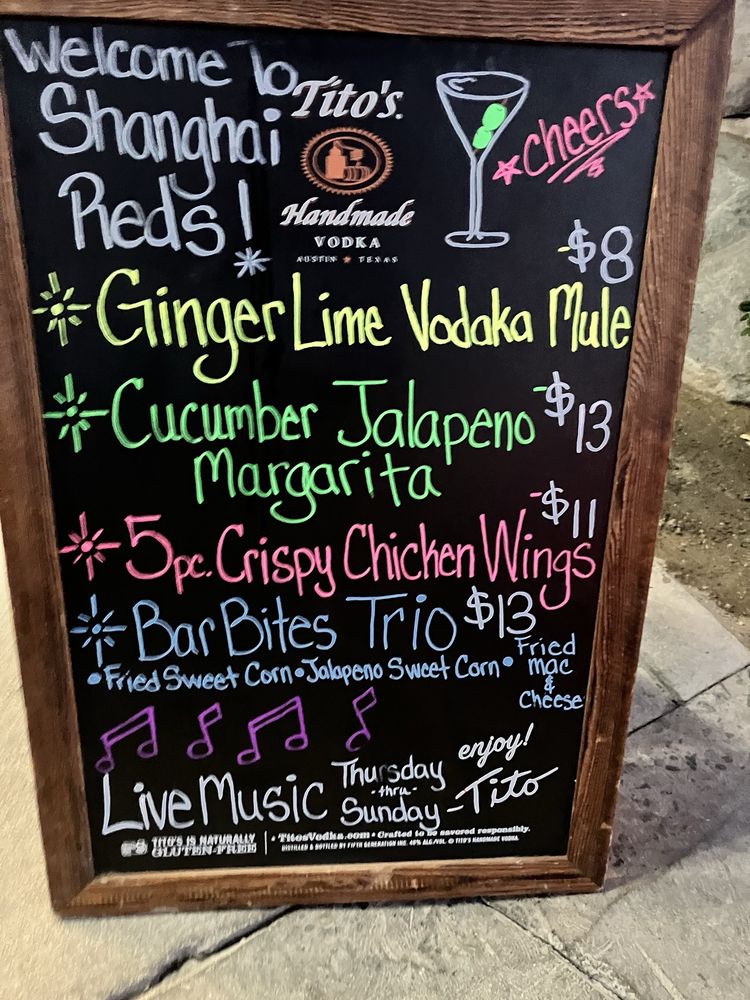 Welcome To
Shanghai
Reds!
Tito's.
Handmade
VODKA
AUSTIN ★ TEXAS
Cheers
-$8
Ginger Lime Vodaka Mule
Cucumber Jalapeno -$13
Margarita
-$11
5pc. Crispy Chicken Wings
Bar Bites Trio $13
•Fried Sweet Corn•Jalapeno Sweet Corn•
Fried
mac
&
Cheese
Live Music
Thursday
-thru-
Sunday
enjoy!
-Tito
TITO'S IS NATURALLY
GLUTEN-FREE
• TitosVodka.com • Crafted to be savored responsibly.
DISTILLED & BOTTLED BY FIFTH GENERATION INC. 40% ALC./VOL. © TITO'S HANDMADE VODKA.